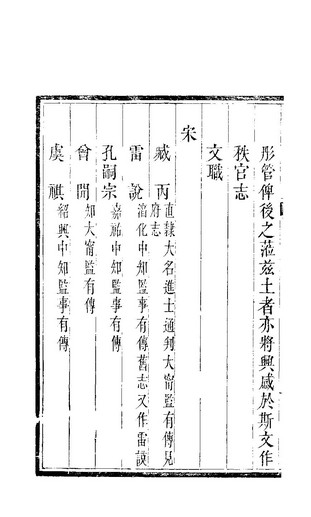 彤管俾後之蒞兹土者亦將興感於斯文作
秩官志
文職
宋
臧丙直隸大名進士通判大甯監有傳見府志
雷說淳化中知監事有傳舊志又作雷説
孔嗣宗嘉祐中知監事有傳
曾閱知大甯監有傳
虞祺紹興中知監事有傳